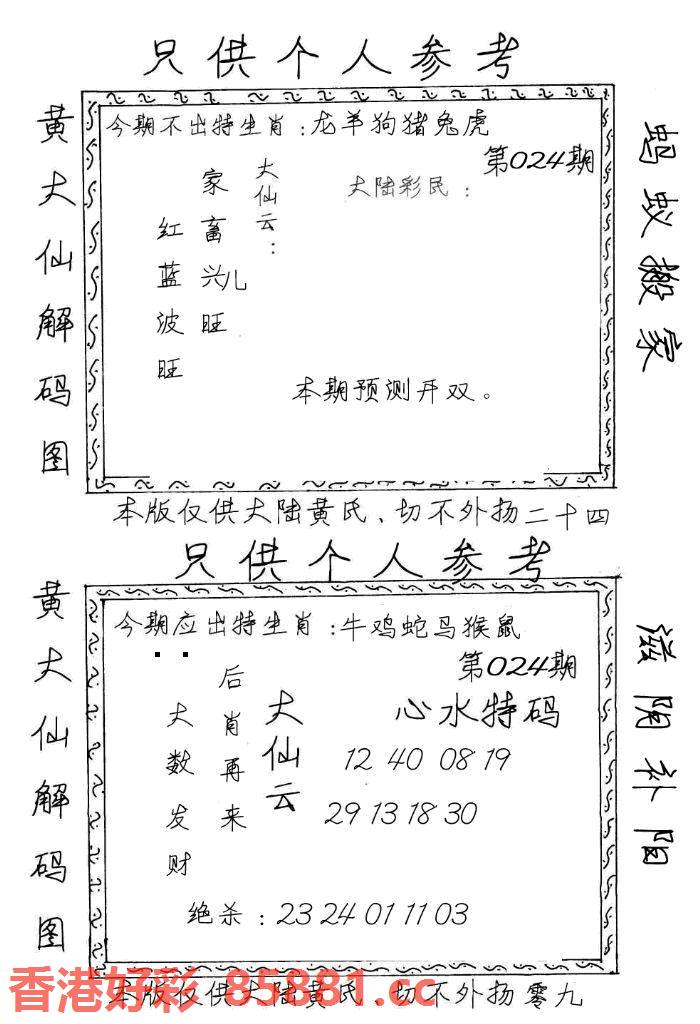 只供个人参考
黄大仙解码图
今期不出特生肖：龙羊狗猪兔虎
第024期
大陆彩民：
大仙云：
家畜兴儿旺
红蓝波旺
本期预测开双。
蚂蚁搬家
本版仅供大陆黄氏、切不外扬二十四
只供个人参考
黄大仙解码图
今期应出特生肖：牛鸡蛇马猴鼠
第024期
大仙云
后肖再来
大数发财
心水特码
12 40 08 19
29 13 18 30
绝杀：23 24 01 11 03
滋阴补阳
香港好彩 85881.cc
本版仅供大陆黄氏、切不外扬零九